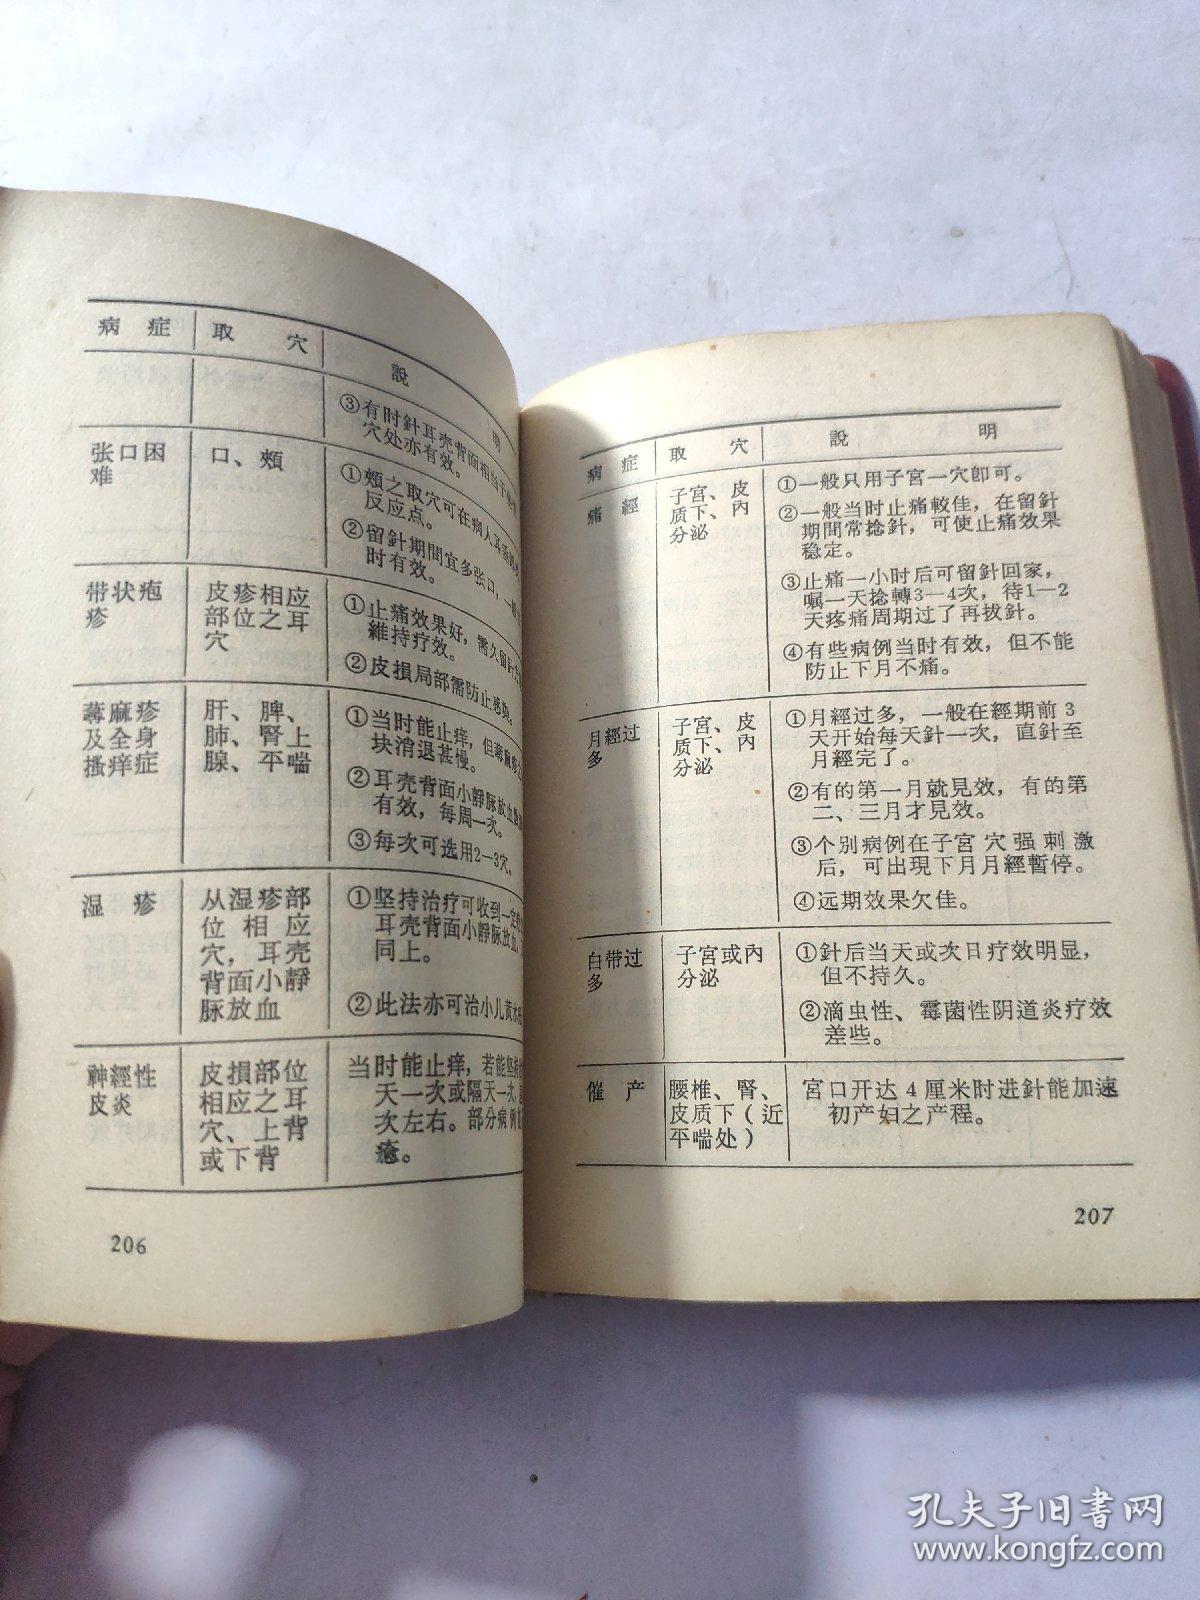 病症 取穴 說明
③有时針耳壳背面相当于
穴处亦有效。
张口困难
口、頰
①頰之取穴可在病人耳垂
反应点。
②留針期間宜多张口,一般
时有效。
带状疱疹
皮疹相应
部位之耳
穴
①止痛效果好,需久留針
維持疗效。
②皮損局部需防止感染。
蕁麻疹
及全身
搔痒症
肝、脾、
肺、腎上
腺、平喘
①当时能止痒,但蕁麻疹
块消退甚慢。
②耳壳背面小靜脉放血
有效,每周一次。
③每次可选用2—3穴。
湿疹
从湿疹部
位相应
穴,耳壳
背面小靜
脉放血
①坚持治疗可收到一定
耳壳背面小靜脉放血,
同上。
②此法亦可治小儿黃水
神經性
皮炎
皮損部位
相应之耳
穴、上背
或下背
当时能止痒,若能坚持
天一次或隔天一次,
次左右。部分病例
愈。
206
病症 取穴 說明
痛經
子宮、皮
质下、內
分泌
①一般只用子宮一穴卽可。
②一般当时止痛較佳,在留針
期間常捻針,可使止痛效果
稳定。
③止痛一小时后可留針回家,
嘱一天捻轉3—4次,待1—2
天疼痛周期过了再拔針。
④有些病例当时有效,但不能
防止下月不痛。
月經过
多
子宮、皮
质下、內
分泌
①月經过多,一般在經期前3
天开始每天針一次,直針至
月經完了。
②有的第一月就見效,有的第
二、三月才見效。
③个別病例在子宮穴强刺激
后,可出現下月月經暫停。
④远期效果欠佳。
白带过
多
子宮或內
分泌
①針后当天或次日疗效明显,
但不持久。
②滴虫性、霉菌性阴道炎疗效
差些。
催产
腰椎、腎、
皮质下(近
平喘处)
宮口开达4厘米时进針能加速
初产妇之产程。
207
孔夫子旧书网
www.kongfz.com